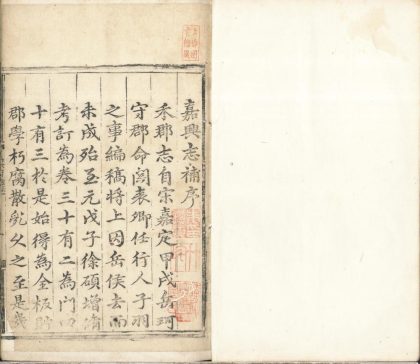 嘉興志補序
禾郡志自宋嘉定甲戌岳珂
守郡命關表卿任行人子羽
之事編稿將上因岳侯去而
未成殆至元戊子徐碩增脩
考訂為卷三十有二為門四
十有三於是始得為全板貯
郡學朽腐散乱久之至是幾